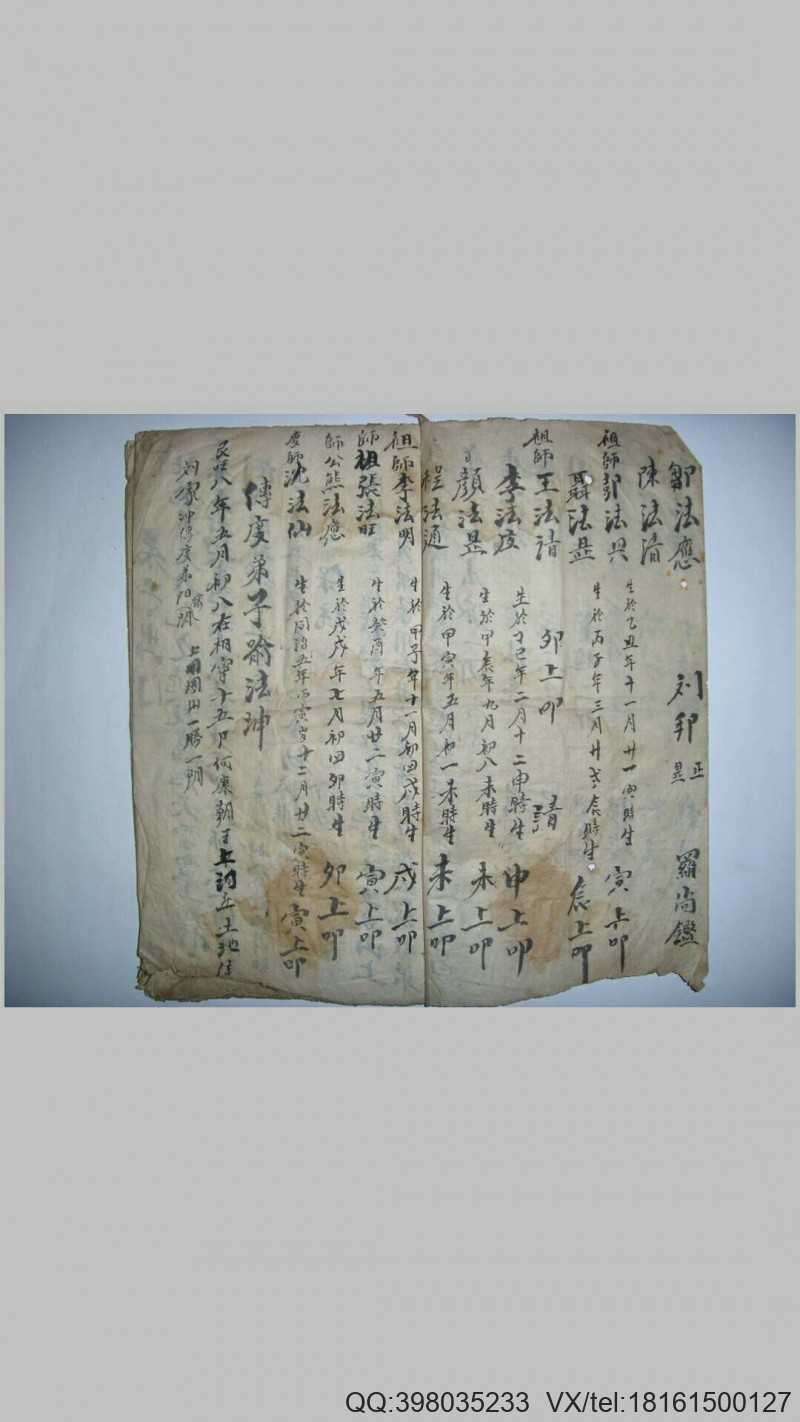 鄒法應 刘邦 正 羅尚鑑
陳法清
祖師彭法兴 生於乙丑年十一月廿一寅時生 寅上卯
聶法 生於丙子年三月廿 辰時生 辰上卯
祖師王法清 卯上卯 請
李法度 生於丁巳年二月十二申時生 申上卯
顏法 生於甲辰年九月初八未時生 未上卯
程法通 生於甲寅年五月初一未時生 未上卯
祖師李法明 生於甲子年十一月初四戌時生 戌上卯
師祖張法旺 生於癸酉年五月廿二寅時生 寅上卯
師公熊法應 生於戊戌年七月初四卯時生 卯上卯
度師沈法仙 生於同治五年丙寅岁十二月廿二寅時生 寅上卯
傳度弟子 法坤
民 八年五月初八 十五 何 朝 上 土地
刘家冲傳度 一勝一
QQ:398035233 VX/tel:18161500127